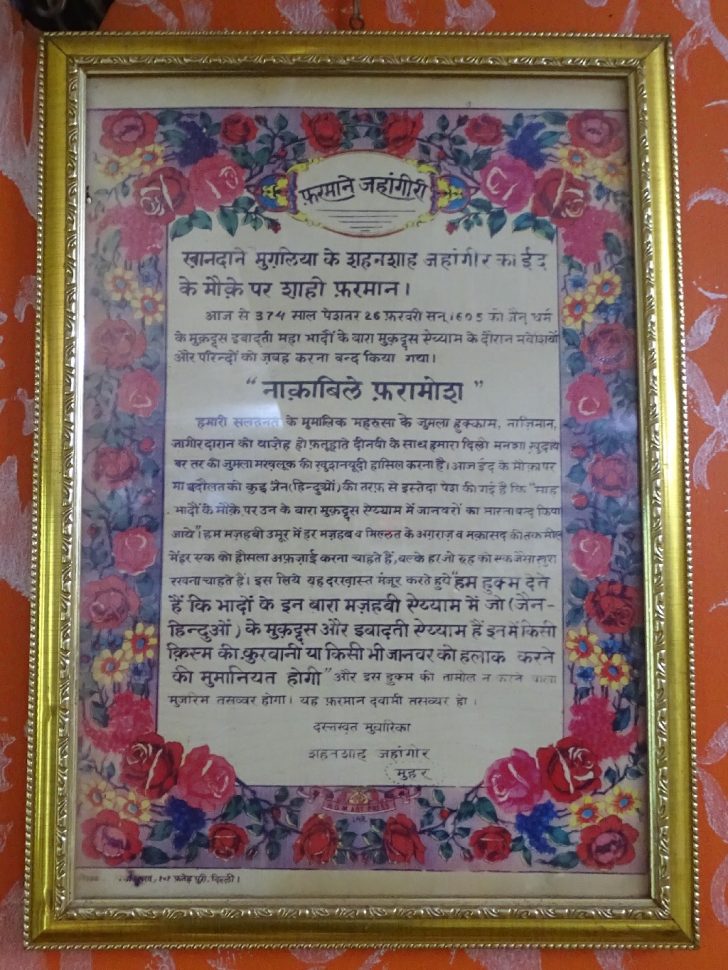 फ़रमाने जहांगीरी
ख़ानदाने मुग़लिया के शहनशाह जहांगीर का ईद
के मौक़े पर शाही फ़रमान।
आज से 374 साल पेशतर 26 फ़रवरी सन् 1605 को जैन धर्म
के मुक़द्दस इबादती महा भादों के बारा मुक़द्दस ऐय्याम के दौरान मवेशियों
और परिन्दों को ज़बह करना बन्द किया गया।
"नाक़ाबिले फ़रामोश"
हमारी सलतनत के मुमालिक महरुसा के जुमला हुक्काम, नाज़िमान,
जागीरदारान को वाज़ेह हो। फ़तूहाते दीनवी के साथ हमारा दिली मनशा ख़ुदाय
बर तर की जुमला मख़लूक की ख़ुशनूदी हासिल करना है। आज ईद के मौक़ा पर
मा बदौलत को कुछ जैन (हिन्दुओं) की तरफ़ से इस्तेदा पेश की गई है कि "माह
भादों के मौक़े पर उन के बारा मुक़द्दस ऐय्याम में जानवरों का मारना बन्द किया
जाये"। हम मज़हबी उमूर में हर मज़हब व मिल्लत के अग़राज़ व मक़ासद की तकमील
में हर एक की हौसला अफ़ज़ाई करना चाहते हैं, बल्के हर जो रुह को एक जैसा ख़ुश
रखना चाहते हैं। इस लिये यह दरख़्वास्त मंज़ूर करते हुये "हम हुक्म देते
हैं कि भादों के इन बारा मज़हबी ऐय्याम में जो (जैन-
हिन्दुओं) के मुक़द्दस और इबादती ऐय्याम हैं इनमें किसी
क़िस्म की क़ुरबानी या किसी भी जानवर को हलाक करने
की मुमानियत होगी" और इस हुक्म की तामील न करने वाला
मुजरिम तसव्वर होगा। यह फ़रमान दवामी तसव्वर हो।
दस्तख़्त मुबारिका
शहनशाह जहांगीर
मुहर
फ़तेह पुरी, दिल्ली।